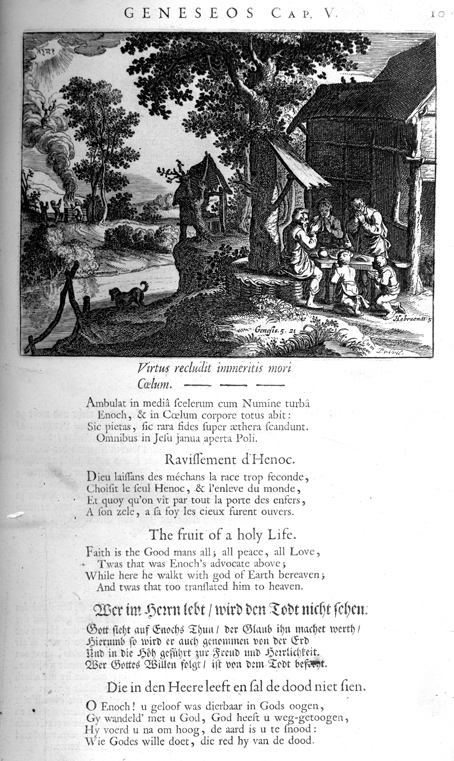 GENESEOS CAP. V. 10
Genesis. 5. 21
Hebreen 11. 5
Privil.
Virtus recludit immeritis mori
Cœlum. — — —
Ambulat in mediâ ſcelerum cum Numine turbâ
Enoch, & in Cœlum corpore totus abit:
Sic pietas, ſic rara fides ſuper æthera ſcandunt.
Omnibus in Jeſu janua aperta Poli.
Raviſſement d'Henoc.
Dieu laiſſans des méchans la race trop feconde,
Choiſit le ſeul Henoc, & l'enleve du monde,
Et quoy qu'on vit par tout la porte des enfers,
A ſon zele, a ſa foy les cieux furent ouvers.
The fruit of a holy Life.
Faith is the Good mans all; all peace, all Love,
Twas that was Enoch's advocate above;
While here he walkt with god of Earth bereaven;
And twas that too tranſlated him to heaven.
Wer im Herrn lebt / wird den Todt nicht ſehen.
Gott ſieht auf Enochs Thun / der Glaub ihn machet werth /
Hierumb ſo wird er auch genommen von der Erd
Und in die Höh geführt zur Freud und Herrlichkeit.
Wer Gottes Willen folgt / iſt von dem Todt
Die in den Heere leeft en ſal de dood niet ſien.
O Enoch! u geloof was dierbaar in Gods oogen,
Gy wandeld' met u God, God heeft u weg-getoogen,
Hy voerd u na om hoog, de aard is u te ſnood:
Wie Godes wille doet, die red hy van de dood.